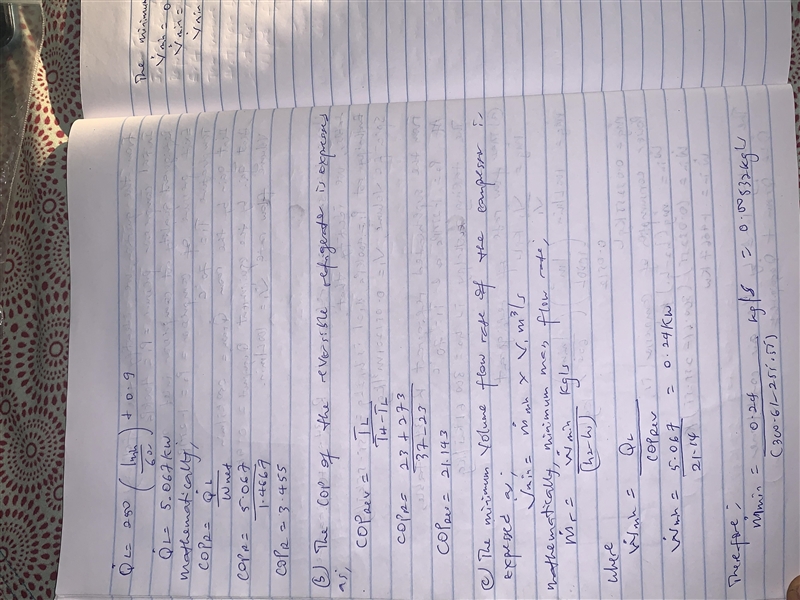 Q̇L = 250 (1min/60s) + 0.9
Q̇L = 5.067kW
mathematically,
COPR = Q̇L / Ẇnet
COPR = 5.067 / 1.4667
COPR = 3.455
(b) The COP of the reversible refrigerator is expressed
as;
COPrev = TL / TH - TL
COPR = 23 + 273 / 37 - 23
COPrev = 21.143
c) The minimum volume flow rate of the compressor is
expressed as;
V̇min = ṁmin x V1 m³/s
mathematically, minimum mass flow rate,
ṁr = Ẇmin / (h2-h1) kg/s
where
Ẇmin = QL / COPrev
Ẇmin = 5.067 / 21.14 = 0.24kW
Therefore;
ṁmin = 0.24 / (300.61-251.51) kg/s = 0.00832kg/s
The minimum
V̇min =
V̇min =
V̇min